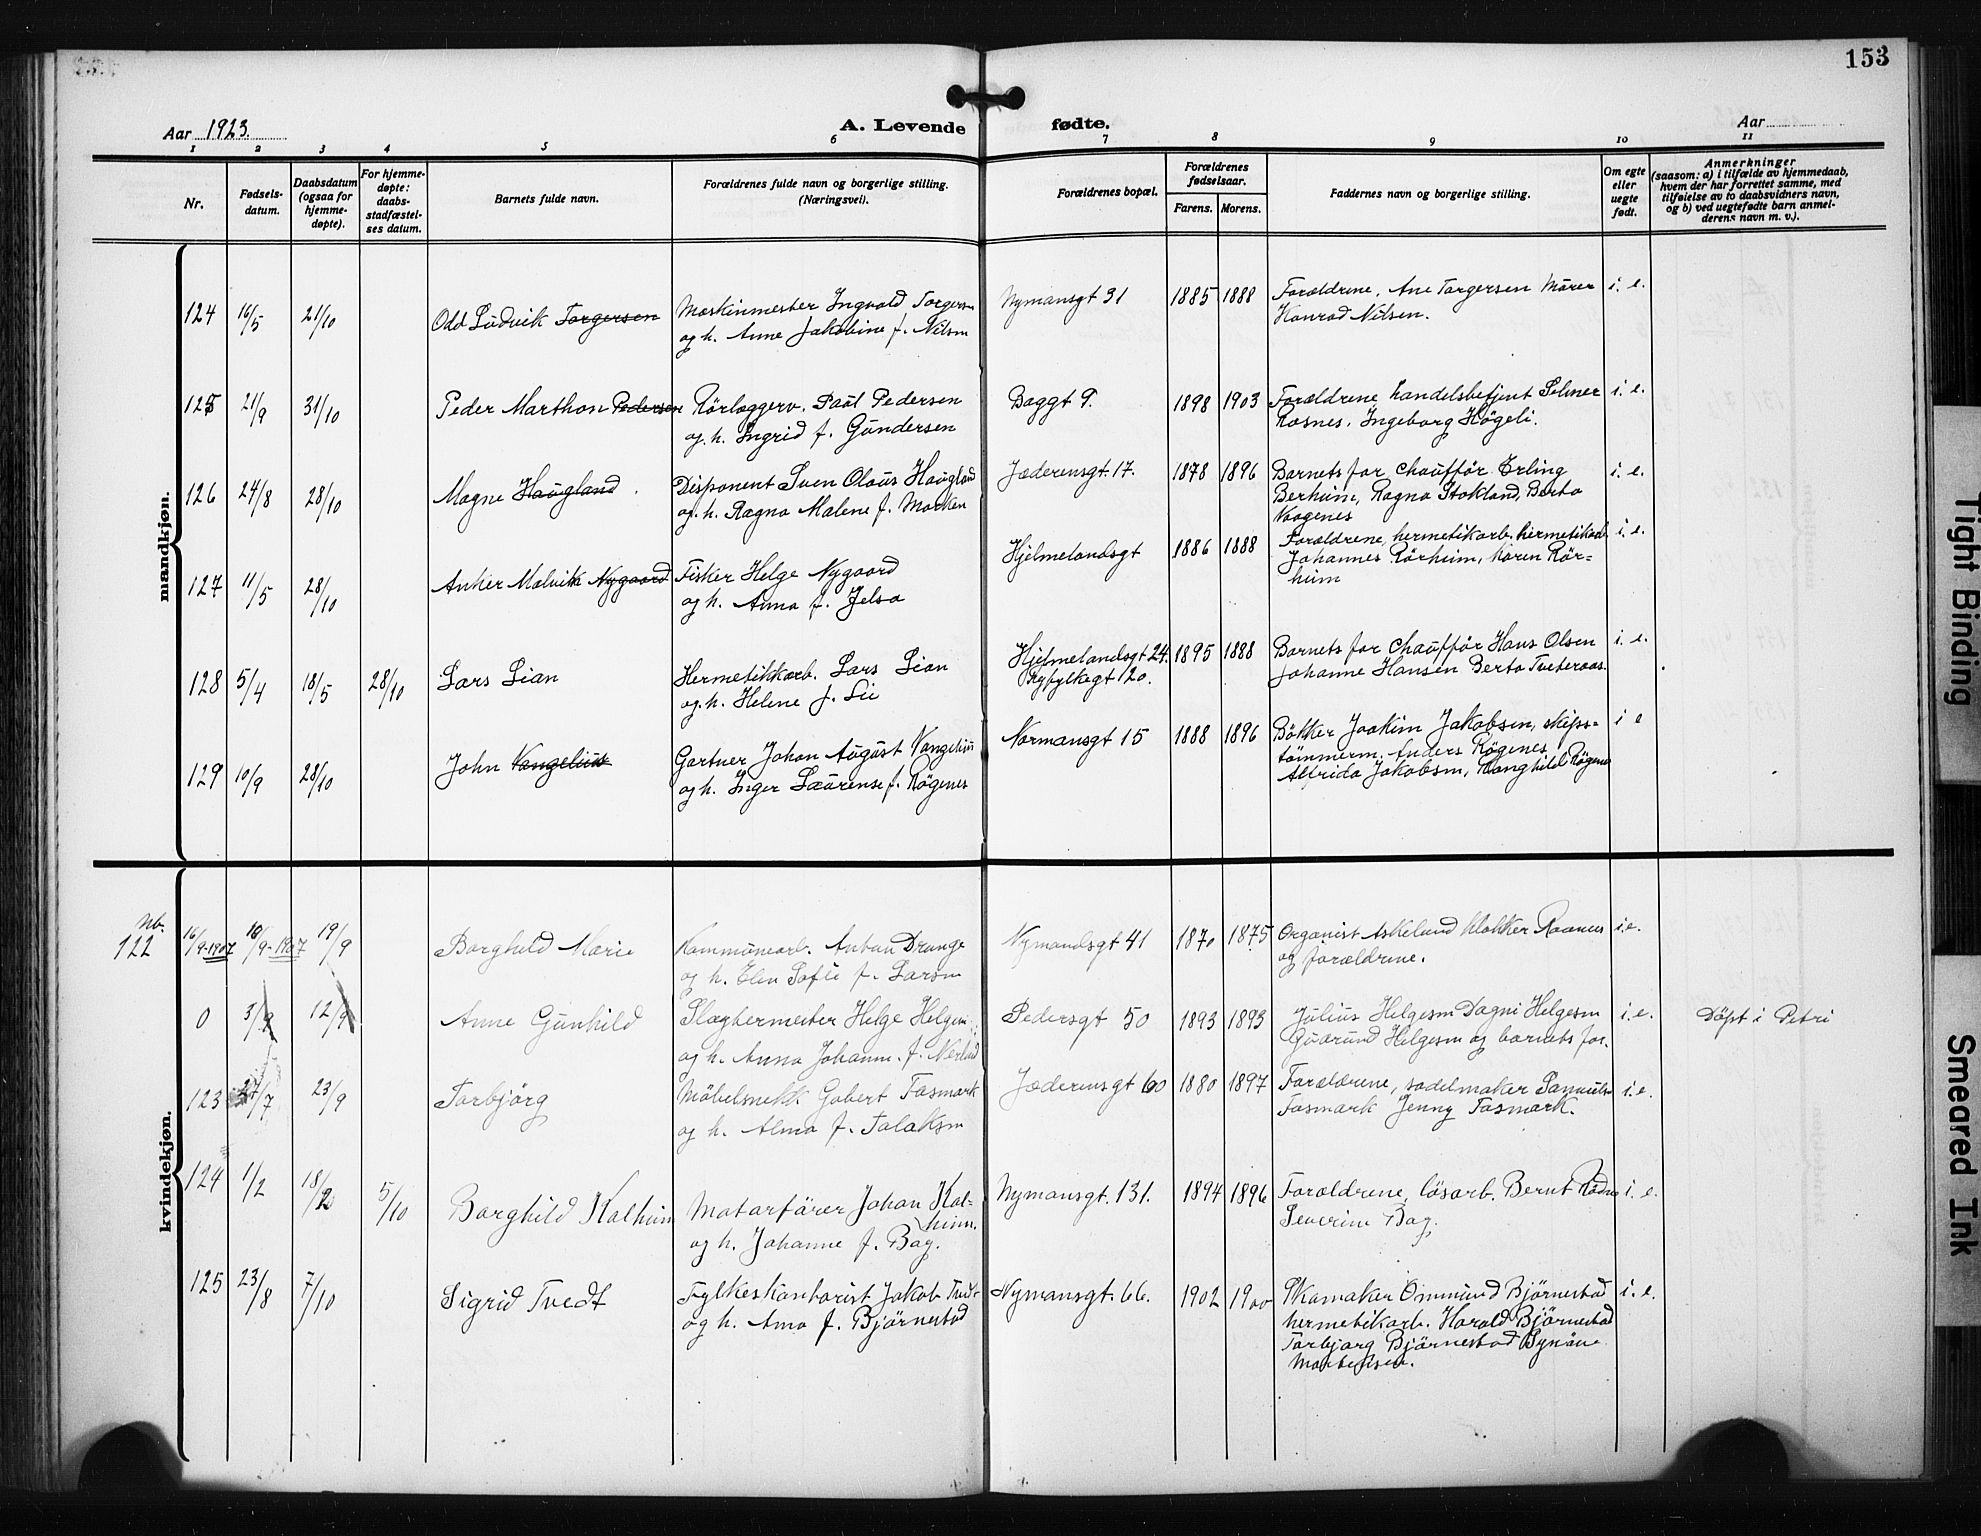 153
Aar 1923.
A. Levende fødte.
Aar
1 2 3 4 5 6 7 8 9 10 11
Nr.
Fødsels-
datum.
Daabsdatum
(ogsaa for
hjemme-
døpte).
For hjemme-
døpte:
daabs-
stadfæstel-
ses datum.
Barnets fulde navn.
Forældrenes fulde navn og borgerlige stilling.
(Næringsvei).
Forældrenes bopæl.
Forældrenes
fødselsaar.
Farens. Morens.
Faddernes navn og borgerlige stilling.
Om egte
eller
uegte
født.
Anmerkninger
(saasom: a) i tilfælde av hjemmedaab,
hvem der har forrettet samme, med
tilføielse av to daabsvidners navn,
og b) ved uegtefødte barn anmel-
derens navn m. v.).
mandkjøn.
124 16/5 21/10 Odd Ludvik Torgersen
Maskinmester Ingvald Torgersen
og h. Anne Jakobine f. Nilsen
Nymansgt 31 1885 1888
Forældrene, Ane Torgersen Mörer
Konrad Nilsen.
i. e.
125 21/9 31/10 Peder Marthon Pedersen
Rörlæggerv. Paul Pedersen
og h. Ingrid f. Gundersen
Baggt 9. 1898 1903
Forældrene, handelsbetjent Selmer
Rosnes, Ingeborg Högeli.
i. e.
126 24/8 28/10 Magne Haugland.
Disponent Sven Olaus Haugland
og h. Ragna Malene f. Marken
Jæderensgt. 17. 1878 1896
Barnets far chaufför Erling
Berheim, Ragna Stokland, Berta
Vaagenes
i. e.
127 11/5 28/10 Anker Malvik Nygaard
Fisker Helge Nygaard
og h. Anna f. Jelsa
Hjelmelandsgt 1886 1888
Forældrene, hermetikarb. hermetikarb.
Johannes Rörheim, Karen Rör-
heim
i. e.
128 5/4 18/5 28/10 Lars Lian
Hermetikkarb. Lars Lian
og h. Helene f. Lie
Hjelmelandsgt 24.
Ryfylkegt 20.
1895 1888
Barnets far chaufför Hans Olsen
Johanne Hansen Berta Tveteraas.
i. e.
129 10/9 28/10 John Vangelius
Gartner Johan August Vangelius
og h. Inger Laurense f. Rögenes
Normansgt 15 1888 1896
Bökker Joakim Jakobsen, skips-
tömmerm. Anders Rögenes
Alfrida Jakobsen, Ranghild Rögenes
i e
kvindekjøn.
Nb.
122 16/9-1907 18/9-1907 19/9 Borghild Marie
Kommunearb. Anton Drange
og h. Elen Sofie f. Larsen
Nymandsgt 41 1870 1875
Organist Askelund klokker Raanes
og forældrene.
i.e.
0 3/9 12/9 Anne Gunhild
Slagtermester Helge Helgesen
og h. Anna Johanne f. Nærland
Pedersgt 50 1893 1893
Julius Helgesen Dagni Helgesen
Gudrund Helgesen og barnets far.
i. e.
Döpt i Petri
123 27/7 23/9 Torbjörg
Möbelsnekk. Gabert Tasmark
og h. Alma f. Talaksen
Jæderensgt 60 1880 1897
Forældrene, sadelmaker Samuelsen
Tasmark Jenny Tasmark.
i. e.
124 1/2 18/2 5/10 Borghild Kalheim
Motorförer Johan Kal-
heim.
og h. Johanne f. Bag.
Nymansgt. 131. 1894 1896
Forældrene, lösarb. Bernt Rödne
Severine Bag.
i. e.
125 23/8 7/10 Sigrid Tvedt
Fylkeskontorist Jakob Tvedt
og h. Anna f. Björnestad
Nymansgt. 66. 1902 1900
Skomaker Ommund Björnestad
hermetikarb. Harald Björnestad
Torbjorg Björnestad Synöve
Mortensen.
i. e.
Tight Binding
Smeared Ink